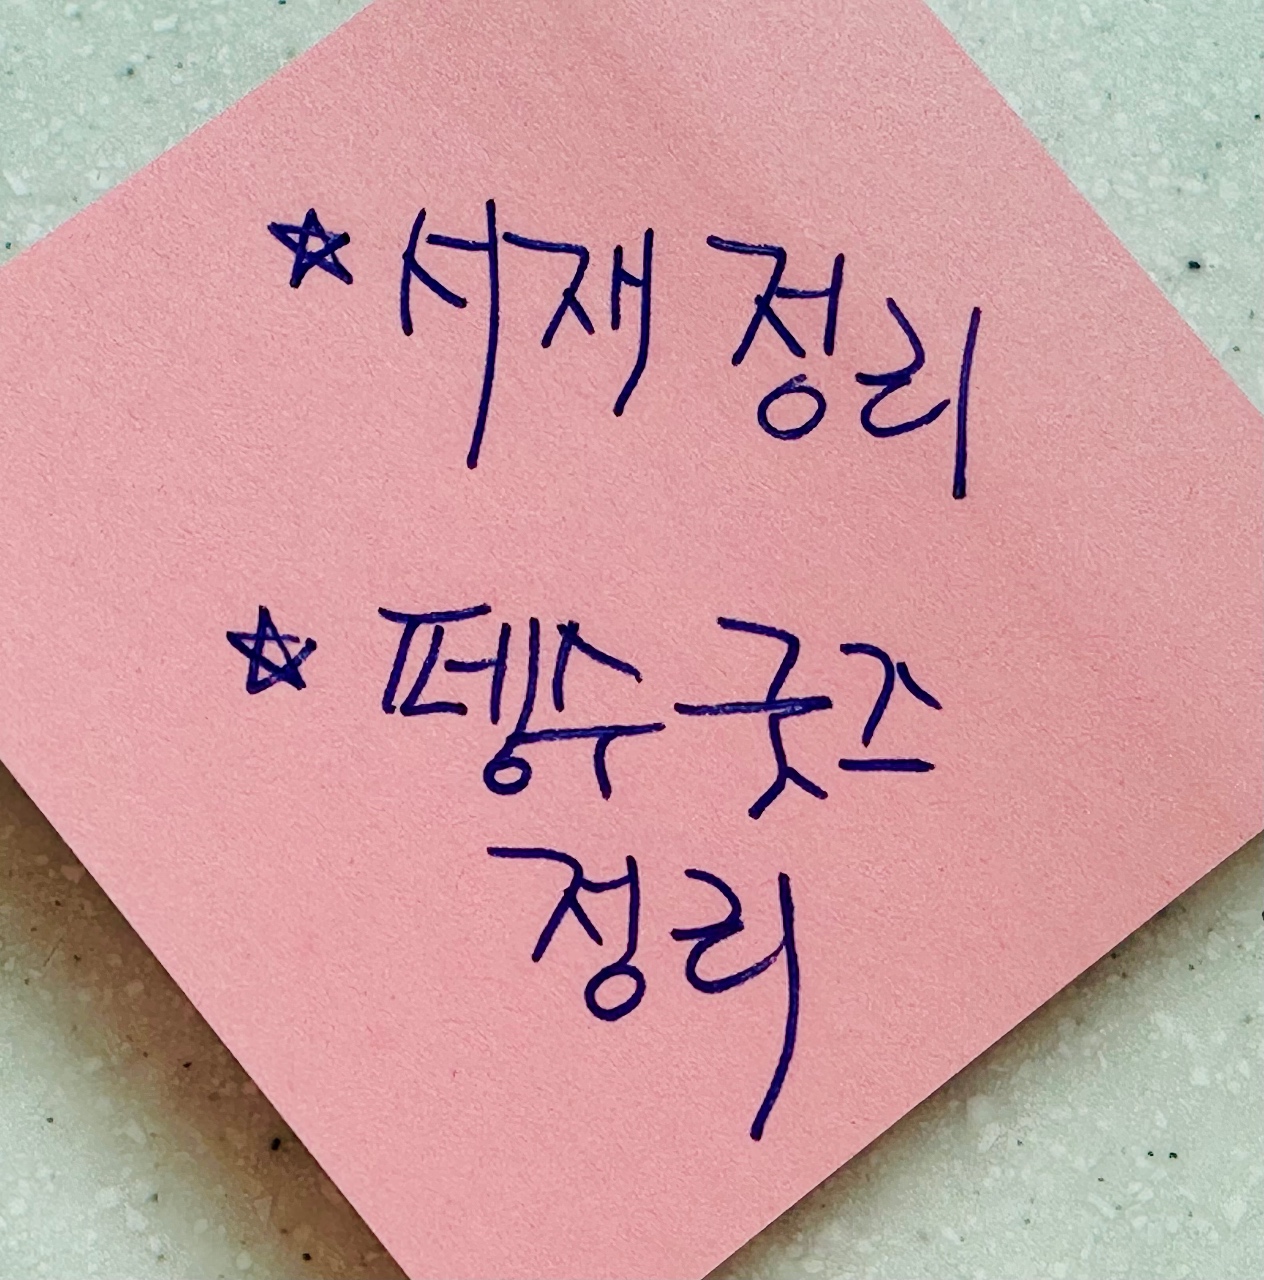 ☆ 서재 정리
☆ 펭수 굿즈
정리